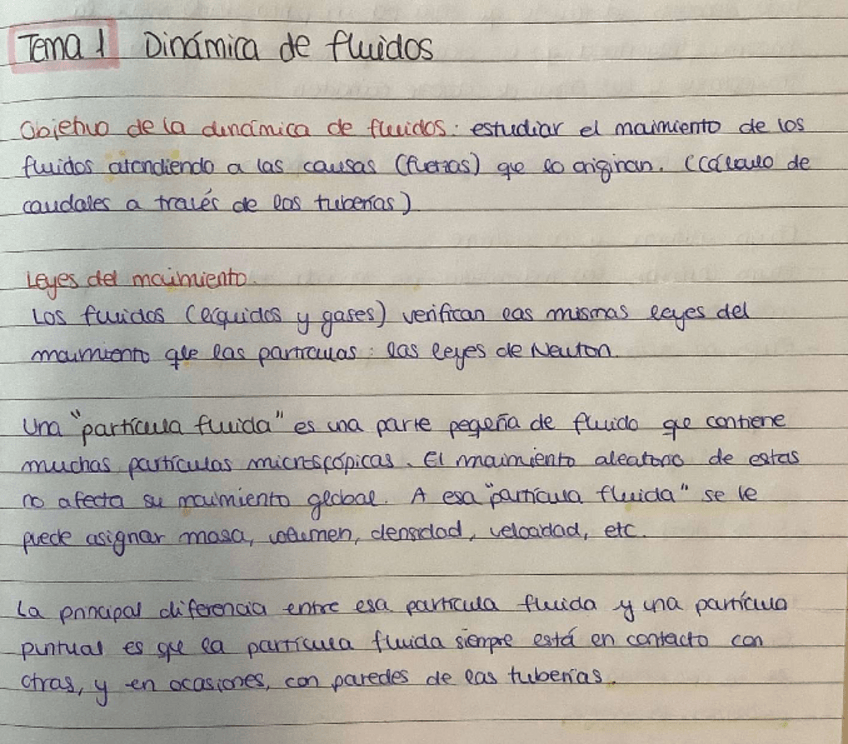 Tema 1 Dinámica de fluidos
Objetivo de la dinámica de fluidos: estudiar el movimiento de los
fluidos atendiendo a las causas (fuerzas) que lo originan. (Cálculo de
caudales a través de las tuberías)
Leyes del movimiento
Los fluidos (líquidos y gases) verifican las mismas leyes del
movimiento que las partículas: las leyes de Newton.
Una "partícula fluida" es una parte pequeña de fluido que contiene
muchas partículas microscópicas. El movimiento aleatorio de estas
no afecta su movimiento global. A esa "partícula fluida" se le
puede asignar masa, volumen, densidad, velocidad, etc.
La principal diferencia entre esa partícula fluida y una partícula
puntual es que la partícula fluida siempre está en contacto con
otras, y en ocasiones, con paredes de las tuberías.